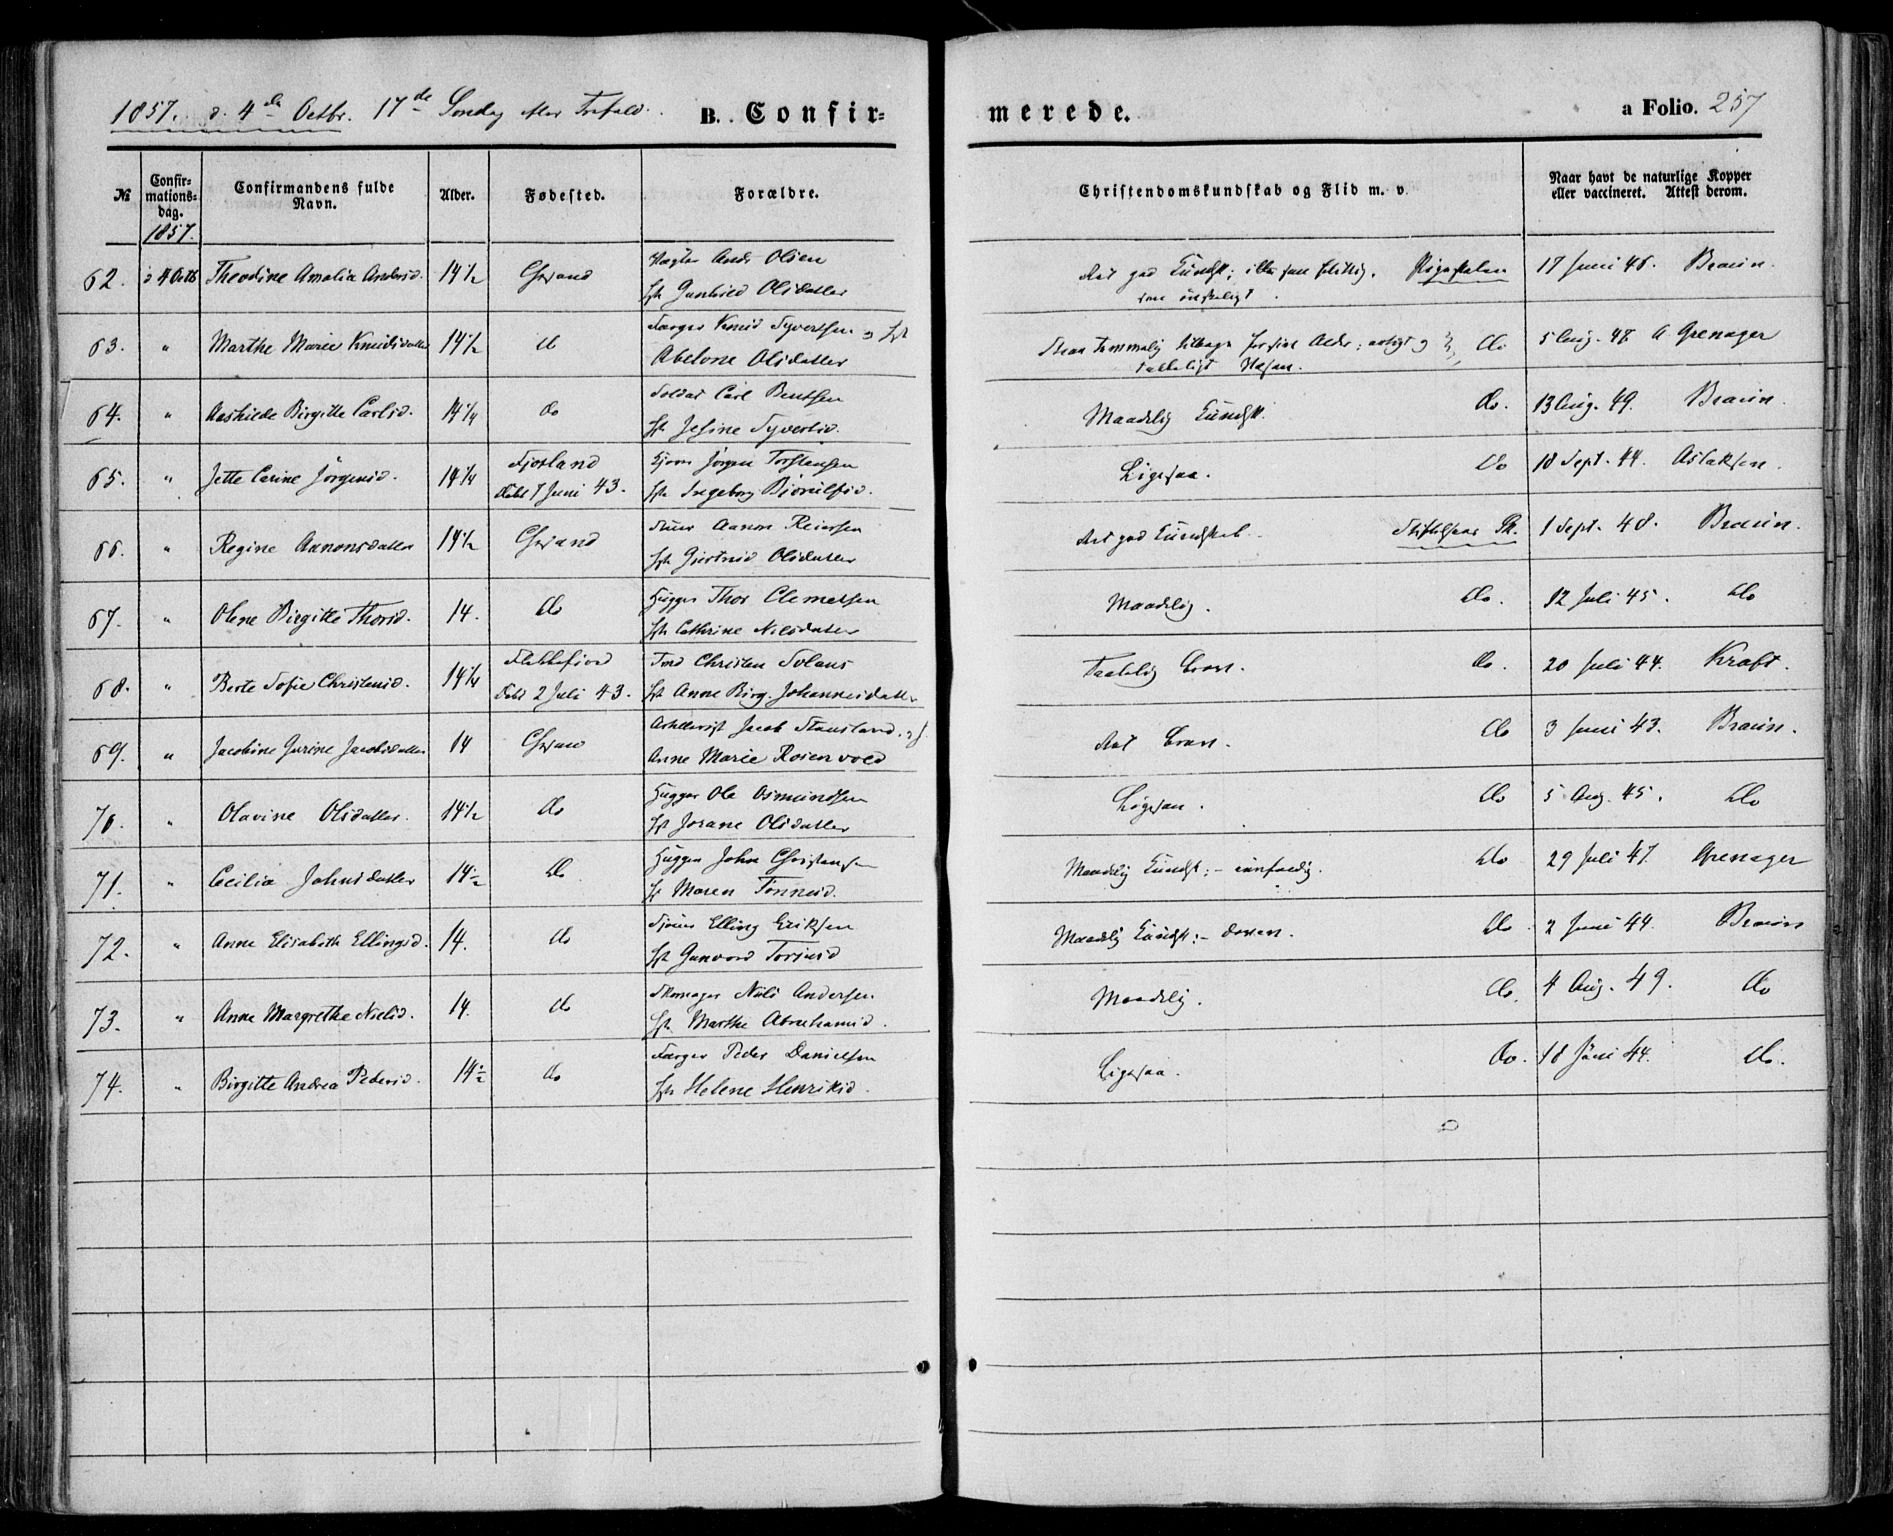 1857. d. 4de Octbr. 17de Søndag efter Trefold. B. Confir= merede. a Folio. 257
№ Confir=mations=dag. Confirmandens fulde Navn. Alder. Fødested. Forældre. Christendomskundskab og Flid m. v. Naar havt de naturlige Kopper eller vaccineret. Attest derom.
1857.
62. d 4 Octb Theodine Amalia Andersd. 14½ Chrsand Vægter Andr Olsen Ret god Kundsk; ikke saa flittig. Pigeskolen 17 Juni 48. Braun.
Gunhild Olsdatter som ønskeligt.
63. " Marthe Marie Knudsdatter 14½ do Farger Knud Syvertsen og Do 5 Aug. 48 A Grenager
Abelone Olsdatter
64. " Aashilde Birgitte Carlsd. 14¼ do Soldat Carl Bentsen Maadelig Kundsk. do. 13 Aug. 49. Braun.
Jesine Syvertsd.
65. " Jette Carine Jörgensd. 14¼ Fjotland Jörgen Torstensen Ligesaa. Do 18 Sept. 44. Aslaksen.
Födt 7 Juni 43. Ingeborg Björulfsd.
66. " Regine Aanonsdatter 14½ Chrsand Aanon Reiersen Ret god Kundskab. 1 Sept. 48. Braun.
Gjertrud Olsdatter
67. " Olene Birgitte Thorsd. 14. do Hugger Thor Clemetsen Maadelig. Do. 12 Juli 45. Do
Cathrine Nilsdatter
68. " Berte Sofie Christensd. 14¼ Flekkefjord Christen Solans do. 20 Juli 44. Kraft.
Födt 2 Juli 43. Anne Birg. Johannesdatter
69. " Jacobine Jurine Jacobsdatter 14 Chrsand Jacob Stausland. Do 3 Juni 43. Braun.
Anne Marie Rosenvold
70. " Olavine Olsdatter. 14½ do Hugger Ole Osmundsen Ligesaa. Do 5 Aug. 45. Do
Josane Olsdatter
71. " Cecilia Johnsdatter 14½ Do. Hugger John Christensen Maadelig Kundsk: – eenfoldig. Do 29 Juli 47. Grenager
Maren Tønnesd.
72. " Anne Elisabeth Ellingsd. 14. do Elling Eriksen Maadelig Kundsk: – doven. Do. 2 Juni 44. Braun
Gunvord Torjusd
73. " Anne Margrethe Nielsd. 14. do Skomager Niels Andersen. Maadelig. do. 4 Aug. 49. do
Marthe Abrahamsd.
74. " Birgitte Andrea Pedersd. 14½ do Farger Peder Danielsen Ligesaa. Do. 18 Juni 44. do.
Helene Henriksd.